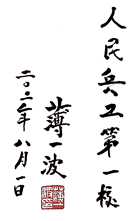 人民兵工第一
薄一波
二〇〇二年八月一日